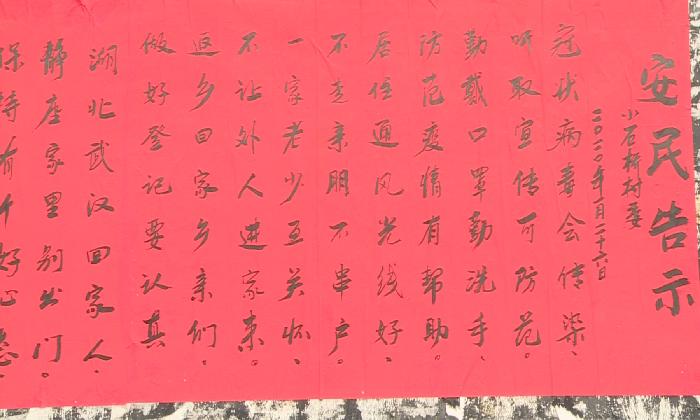 安民告示
小石桥村委
二〇二〇年一月二十六日
冠状病毒会传染、
听取宣传可防范。
勤戴口罩勤洗手、
防范疫情有帮助。
居住通风光线好、
不走亲朋不串户。
一家老少互关怀、
不让外人进家来。
返乡回家乡亲们、
做好登记要认真
湖北武汉回家人、
静座家里别出门。
保持有个好心态